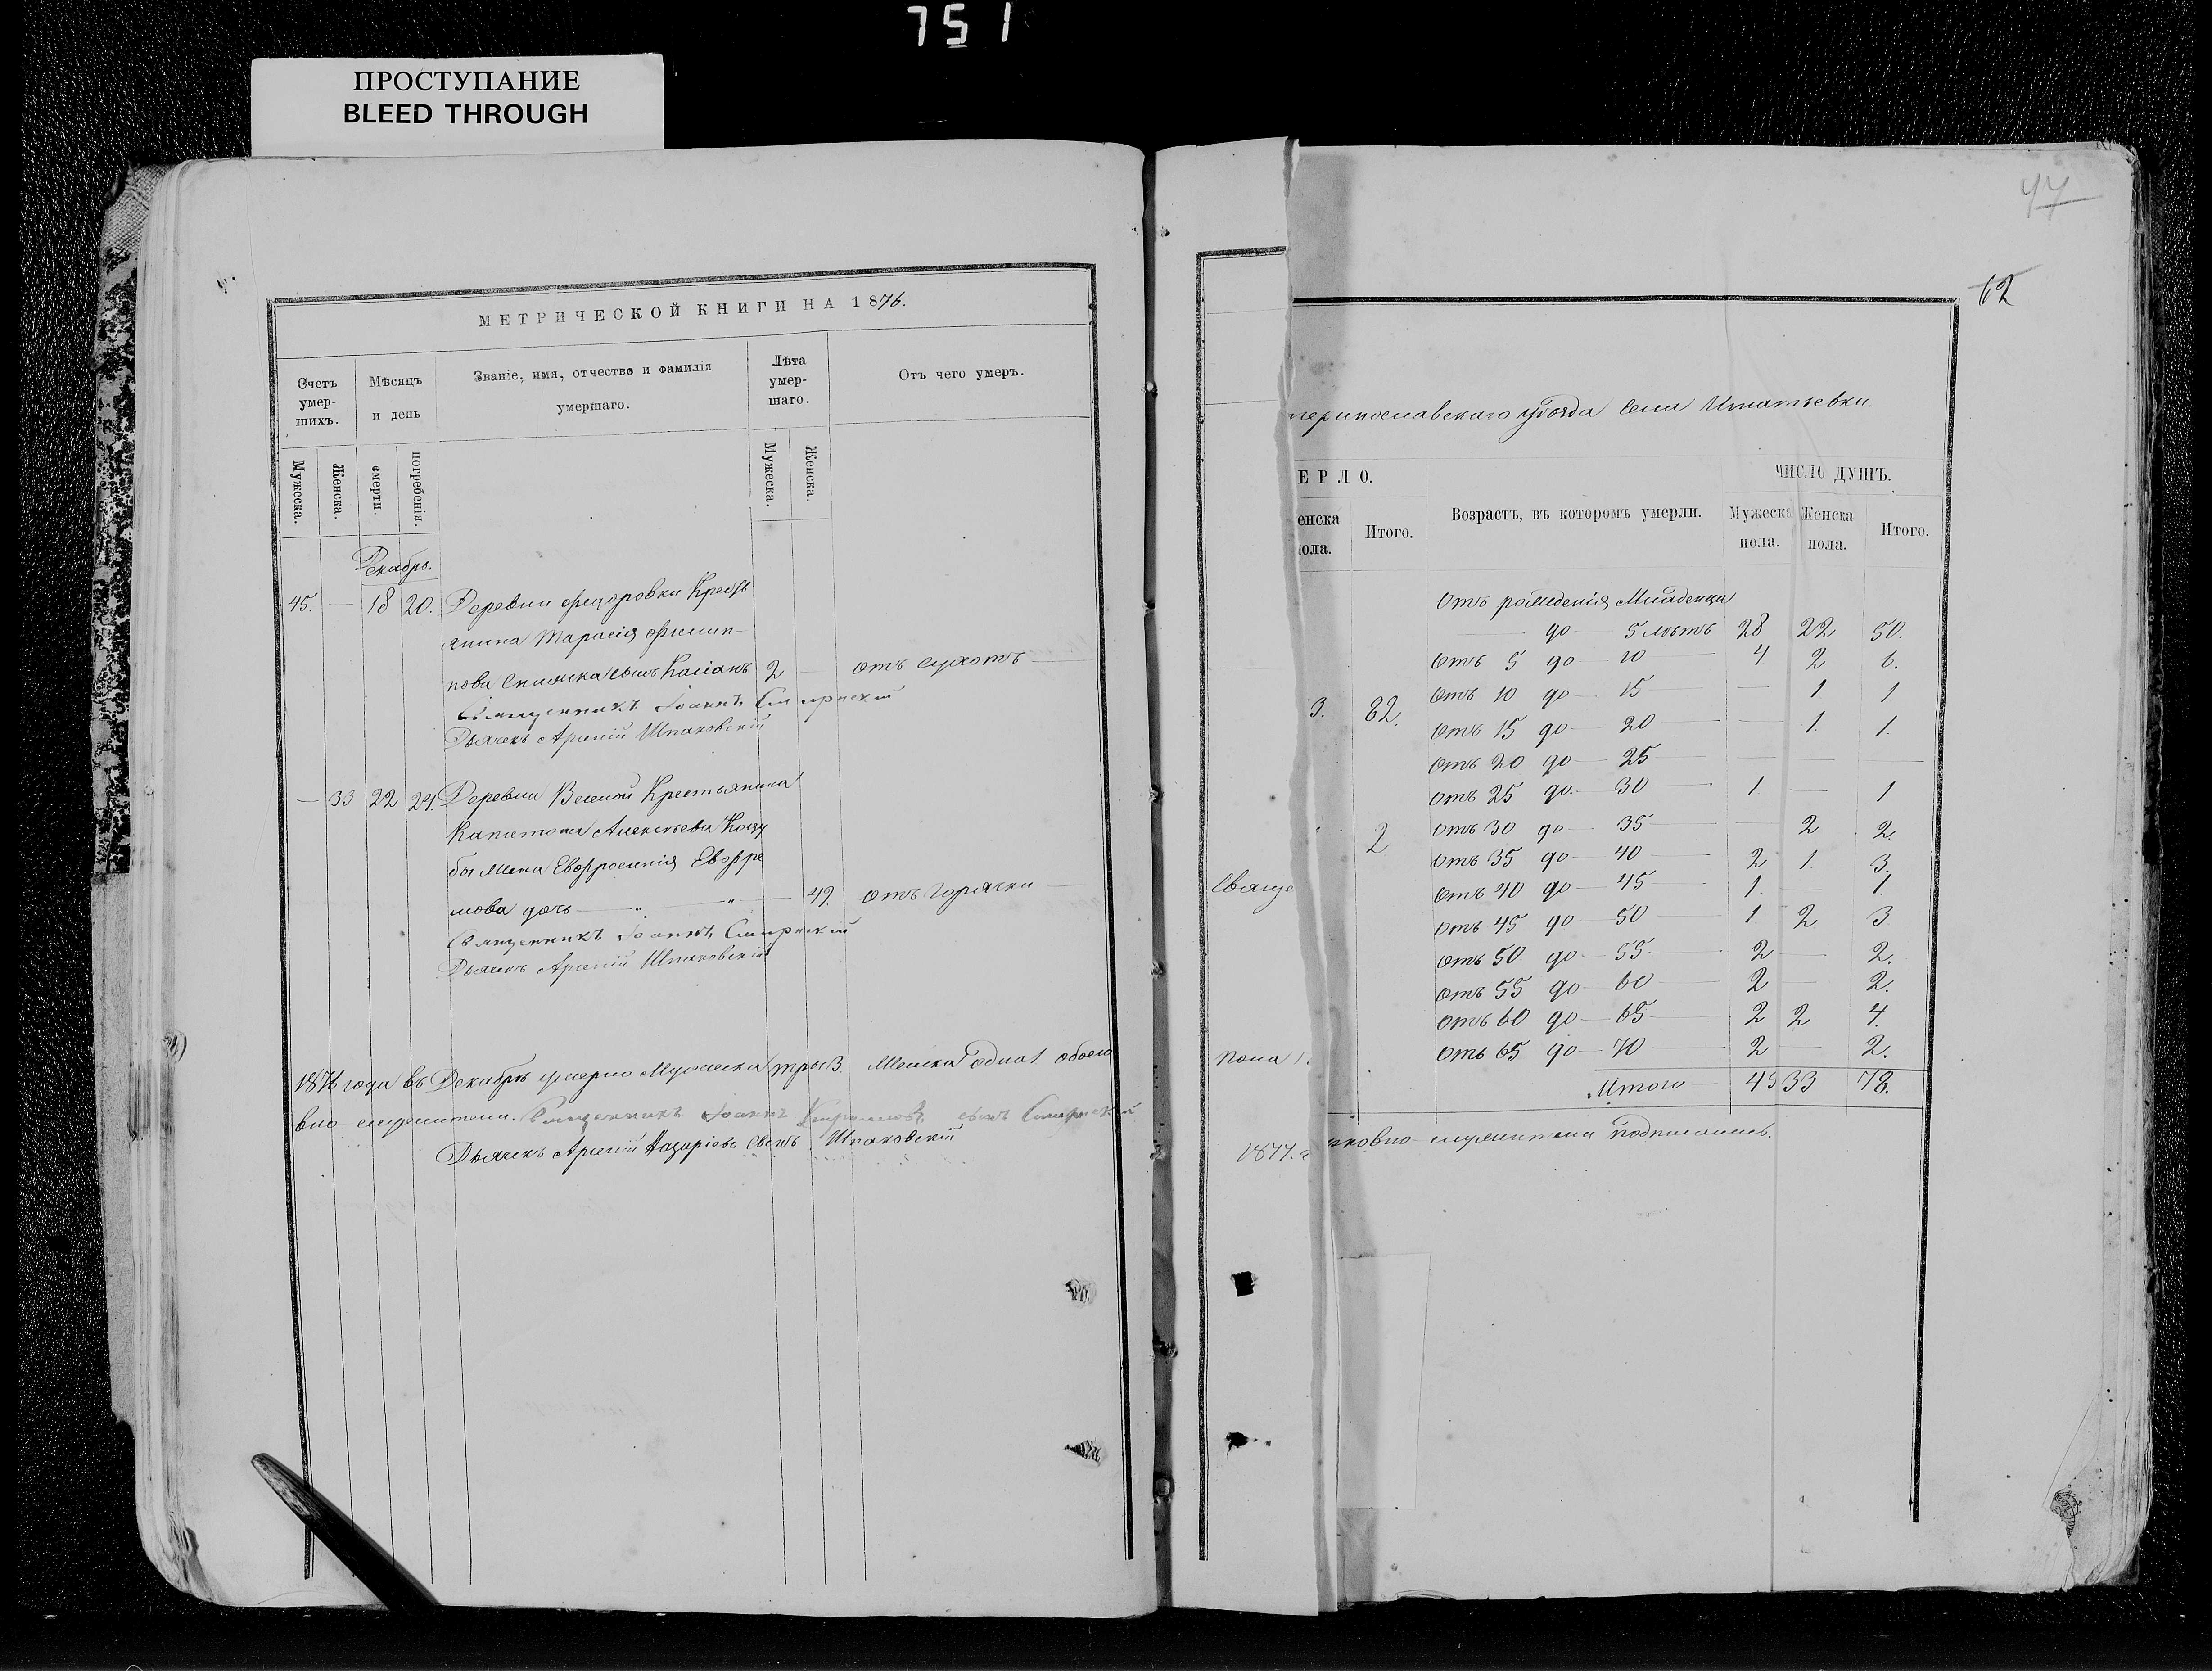 751
ПРОСТУПАНИЕ
BLEED THROUGH
МЕТРИЧЕСКОЙ КНИГИ НА 1876.
Счетъ умер-шихъ.
Мѣсяцъ и день
Званіе, имя, отчество и фамилія умершаго.
Лѣта умер-шаго.
Отъ чего умеръ.
Мужеска.
Женска.
смерти.
погребенія.
Мужеска.
Женска.
Декабрь.
45. — 18 20. Деревни Федоровки Кресть
янина Тарасія Филип-
пова сынъ 2 — отъ сухотъ —
Священникъ Іоаннъ
Дьячекъ Арсеній Шпаковскій
— 33 22 24. Деревни Веселой Крестьянина
Капитона Алексѣева
жена Евфросинія Ефре
мова дочь — „ — „ — 49. отъ горячки —
Священникъ Іоаннъ
Дьячекъ Арсеній Шпаковскій
1876 года въ Декабрѣ умерло Мужеска три 3. Женска одна 1 обоего
вно служители. Священникъ Іоаннъ сынъ
Дьячекъ Арсеній Назаріевъ сынъ Шпаковскій
47
62
теринославскаго уѣзда села Игнатьевки.
ЕРЛО.
ЧИСЛО ДУШЪ.
енска пола.
Итого.
Возрастъ, въ которомъ умерли.
Мужеска пола.
Женска пола.
Итого.
Отъ рожденія Младенца
до — 5 лѣтъ 28 22 50.
Отъ 5 до — 10 — 4 2 6.
Отъ 10 до — 15 — — 1 1.
3. 82.
Отъ 15 до — 20 — — 1. 1.
Отъ 20 до — 25 — — — —
Отъ 25 до — 30 — 1 — 1
Отъ 30 до — 35 — — 2 2.
2
Отъ 35 до — 40 — 2 1 3.
Свяще
Отъ 40 до — 45 — 1. — 1.
Отъ 45 до — 50 — 1 2 3
Отъ 50 до — 55 — 2 — 2.
Отъ 55 до — 60 — 2 — 2.
Отъ 60 до — 65 — 2 2 4.
пола
Отъ 65 до — 70 — 2 — 2.
Итого — 45 33 78.
1877. г
рковно-служители подписались.